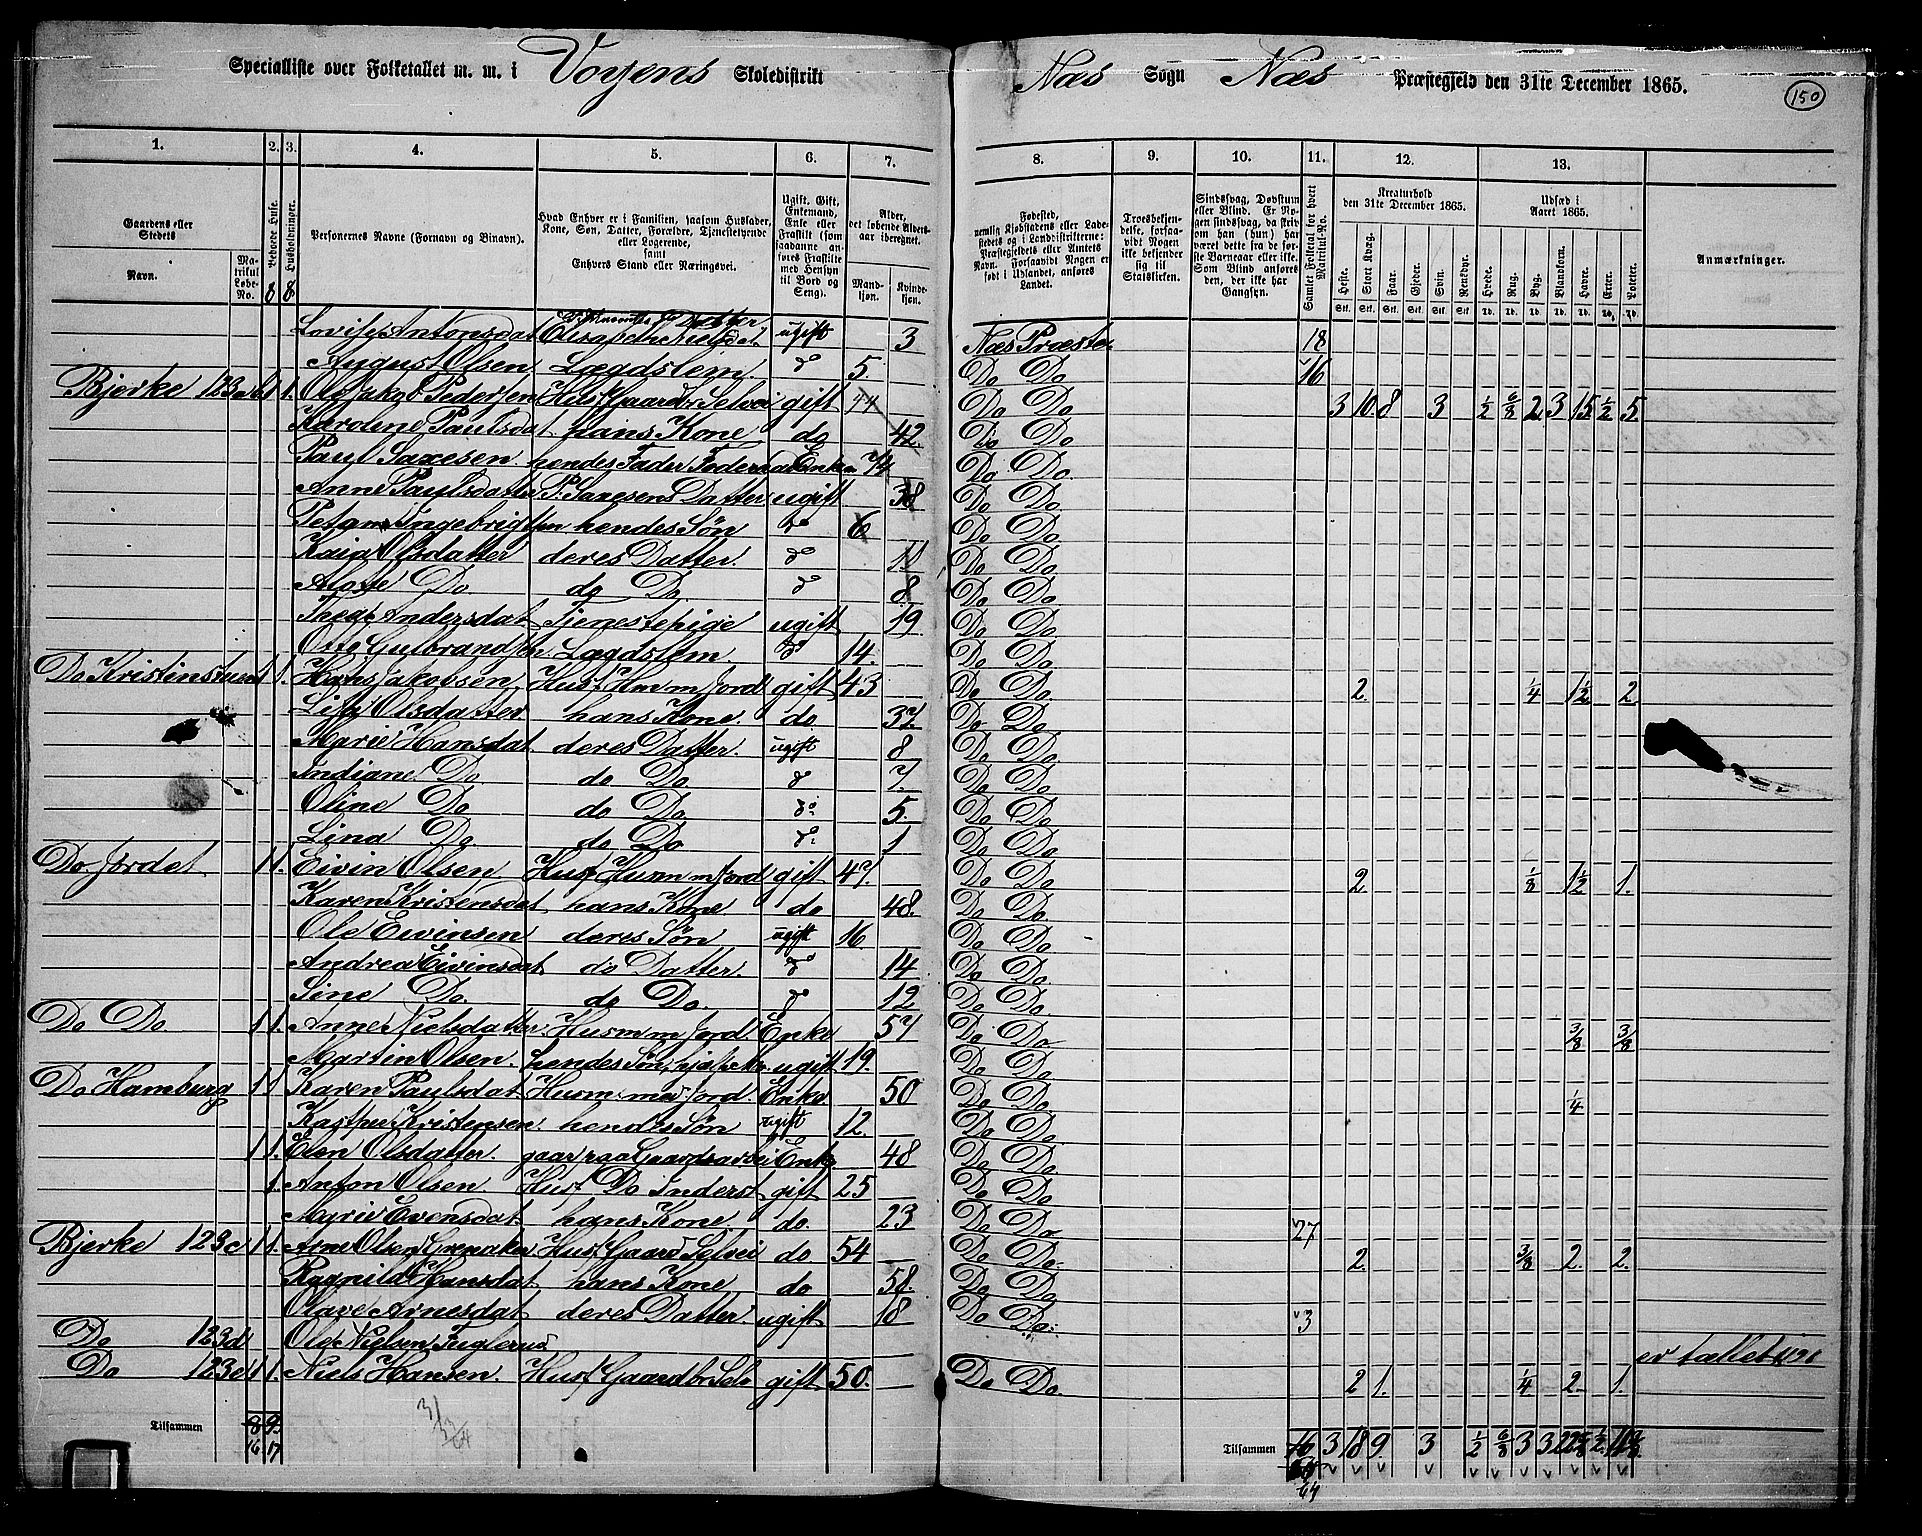 Specialliste over Folketallet m. m. i Voyens Skoledistrikt Næs Sogn Næs Præstegjeld den 31te December 1865.
150
1. 2. 3. 4. 5. 6. 7. 8. 9. 10. 11. 12. 13.
Gaardens eller Stedets
Navn.
Matrikul Løbe-No.
Beboede Huse.
Husholdninger.
Personernes Navne (Fornavn og Binavn).
Hvad Enhver er i Familien, saasom Husfader, Kone, Søn, Datter, Forældre, Tjenestetyende eller Logerende, samt Enhvers Stand eller Næringsvei.
Ugift, Gift, Enkemand, Enke eller Fraskilt (som saadanne anføres Fraskilte med Hensyn til Bord og Seng).
Alder, det løbende Aldersaar iberegnet.
Mandkjøn. Kvindekjøn.
Fødested, nemlig Kjøbstadens eller Ladestedets og i Landdistrikterne: Præstegjeldets eller Amtets Navn. Forsaavidt Nogen er født i Udlandet, anføres Landet.
Troesbekjendelse, forsaavidt Nogen ikke bekjender sig til Statskirken.
Sindssvag, Døvstum eller Blind. Er Nogen sindssvag, da skriv om han (hun) har været dette fra de første Barneaar eller ikke. Som Blind anføres den, der ikke har Gangsyn.
Samlet Folketal for hvert Matrikul-No.
Kreaturhold den 31te December 1865.
Heste. Stort Kvæg. Faar. Gjeder. Svin. Rensdyr.
Udsæd i Aaret 1865.
Hvede. Rug. Byg. Blandkorn. Havre. Erter. Poteter.
Anmærkninger.
8 8
Lovise Antonsdat ugift 3 Næs Præste 18
August Olsen Lægdslem do 5. Do Do 16
Bjerke 123 1 1. Ole Jakob Pedersen Husf Gaardbr Selvei gift 44 Do Do 3 10 8 3 1/2 6/8 2 3 15 1/2 5
Karoline Paulsdat hans Kone do 42 Do Do
Paul Saxesen hendes Fader 74 Do Do.
Anne Paulsdatter P. Saxesens Datter ugift 38 Do Do
Ingebrigtsen hendes Søn do 6 Do Do
Kaia Olsdatter deres Datter. do 11 Do Do
Do do Do. do 8 Do Do
Thea Andersdat Tjenestepige ugift 19 Do Do
Otto Gulbrandsen Lægdslem do 14. Do Do
Do Kristinstuen 1 1. Hans Jakobsen Husf Husm m Jord gift 43 Do Do 2. 1/4 1 1/2 2.
Lisa Olsdatter hans Kone. do 37 Do Do
Marie Hansdat. deres Datter. ugift 8 Do Do
Indiane Do do Do. do 7. Do Do
Oline Do do Do. do 5. Do Do
Lina Do do Do do 1 Do Do
Do. Jordet 1 1. Eivin Olsen Husf Husm m Jord gift 47. Do Do 2 1/8 1 1/2 1.
Karen Kristensdat hans Kone do 48. Do Do.
Ole Eivinsen deres Søn ugift 16 Do Do
Andrea Eivinsdat do Datter. do 14 Do Do.
Sine Do. do Do. do 12 Do Do.
Do Do 1 1 Anne Nielsdatter. Husm m Jord. Enke 57 Do Do 3/8 3/8
Martin Olsen. hendes Søn, ugift 19. Do Do
Do Hamburg 1 1 Karen Paulsdat Husm med Jord. Enke 50 Do Do 1/4
Kristensen. hendes Søn ugift 12. Do Do
1 1. Elen Olsdatter. gaar paa Gaardsarbei Enke 48 Do Do
1. Anton Olsen Husf Do Inderst gift 25 Do Do.
Evensdat. hans Kone. do. 23 Do Do 27
Bjerke 123c 1 1. Arne Olsen Husf Gaardb Selvei do. 54 Do Do. 2. 3/8 2. 2.
Ragnild Hansdat hans Kone do 58. Do Do
Olave Arnesdat deres Datter. ugift 18 Do Do. 3
Do 123d Ole Nielsen Fuglerud er tallet
Do 123e 1 1. Niels Hansen. Husf Gaardbr Selv gift 50. Do Do. 2 1. 1/4 2. 1.
Tilsammen 8 9
16 17
Tilsammen 3 18 9. 3 1/2 6/8 3 3 22 5/8 1/2
64